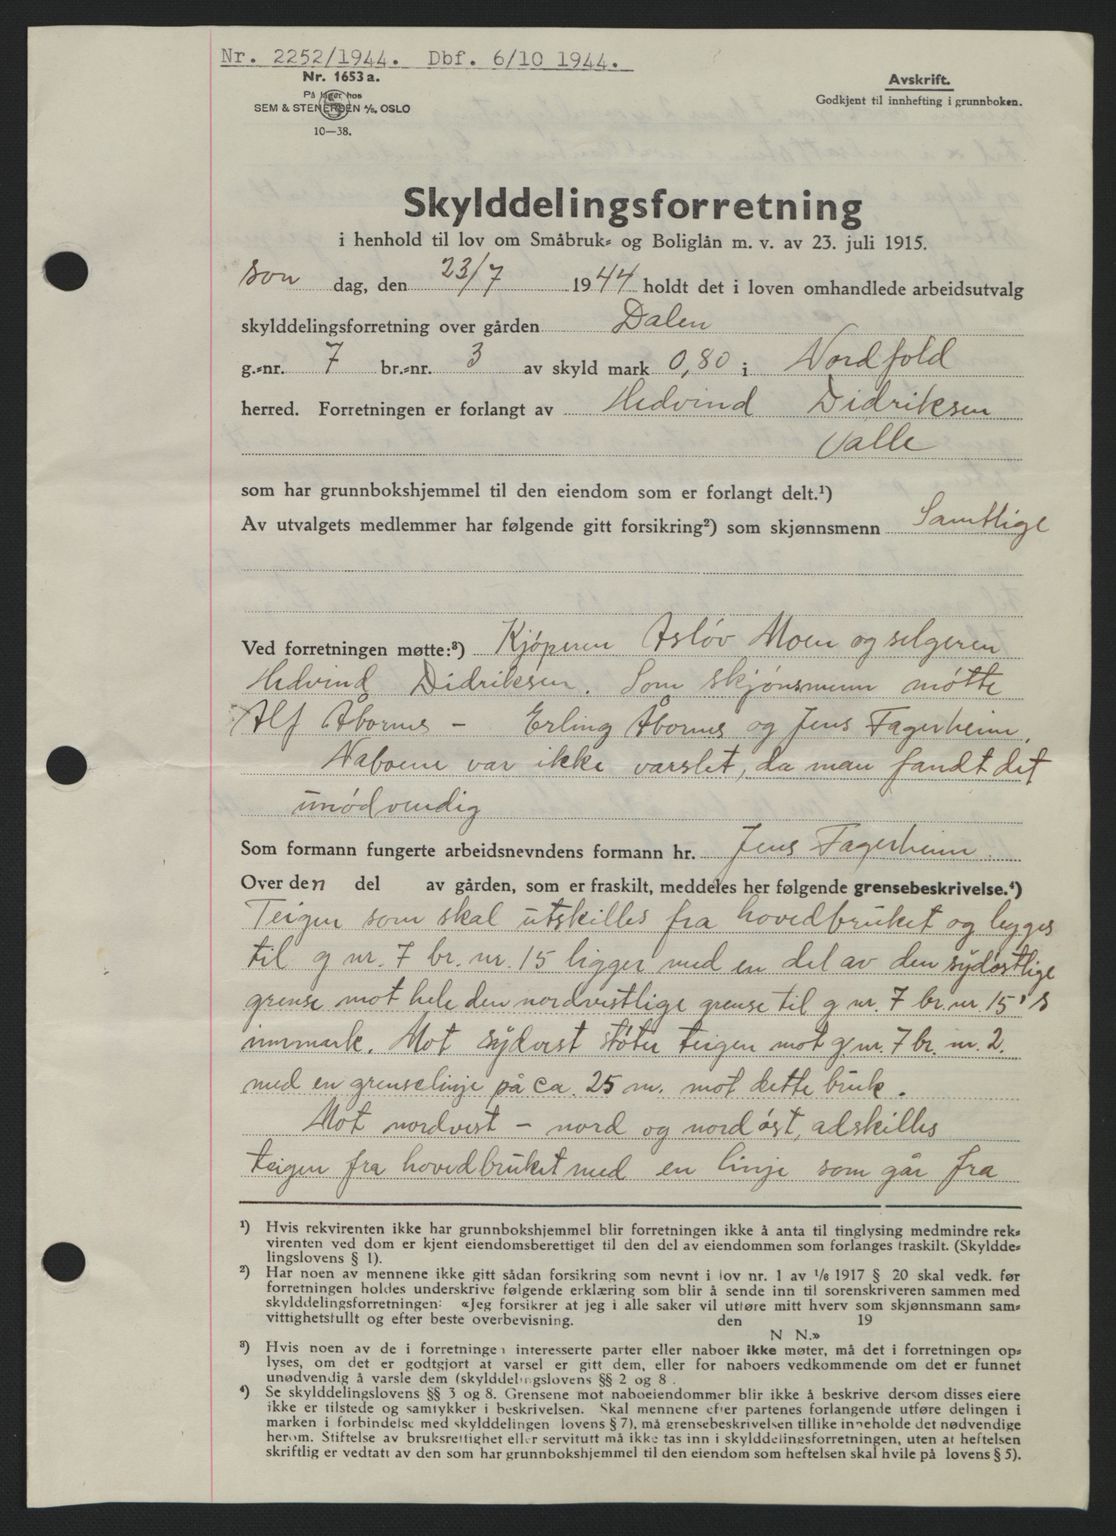 Nr. 2252/1944. Dbf. 6/10 1944.
Nr. 1653 a.
På lager hos
SEM & STENERSEN A/S, OSLO
10—38.
Avskrift.
Godkjent til innhefting i grunnboken.
Skylddelingsforretning
i henhold til lov om Småbruk- og Boliglån m. v. av 23. juli 1915.
søn dag, den 23/7 1944 holdt det i loven omhandlede arbeidsutvalg
skylddelingsforretning over gården Dalen
g.-nr. 7 br.-nr. 3 av skyld mark 0,80 i Nordfold
herred. Forretningen er forlangt av Hedvind Didriksen
Valle
som har grunnbokshjemmel til den eiendom som er forlangt delt.¹)
Av utvalgets medlemmer har følgende gitt forsikring²) som skjønnsmenn Samtlige
Ved forretningen møtte:³) Kjøperen Asløv Moen og selgeren
Hedvind Didriksen. Som skjønsmenn møtte
Alf Åbornes – Erling Åbornes og Jens Fagerheim.
Naboene var ikke varslet, da man fandt det
unødvendig
Som formann fungerte arbeidsnevndens formann hr. Jens Fagerheim.
Over den del av gården, som er fraskilt, meddeles her følgende grensebeskrivelse.⁴)
Teigen som skal utskilles fra hovedbruket og legges
til g nr. 7 br. nr. 15 ligger med en del av den sydøstlige
grense mot hele den nordvestlige grense til g nr. 7 br. nr. 15's
innmark. Mot sydvest støter teigen mot g. nr. 7 br. nr. 2.
med en grenselinje på ca. 25 m. mot dette bruk.
Mot nordvest – nord og nordøst, adskilles
teigen fra hovedbruket med en linje som går fra
¹) Hvis rekvirenten ikke har grunnbokshjemmel blir forretningen ikke å anta til tinglysing medmindre rek-
virenten ved dom er kjent eiendomsberettiget til den del av eiendommen som forlanges fraskilt. (Skyldde-
lingslovens § 1).
²) Har noen av mennene ikke gitt sådan forsikring som nevnt i lov nr. 1 av 1/6 1917 § 20 skal vedk. før
forretningen holdes underskrive følgende erklæring som blir å sende inn til sorenskriveren sammen med
skylddelingsforretningen: «Jeg forsikrer at jeg i alle saker vil utføre mitt hverv som skjønnsmann sam-
vittighetsfullt og efter beste overbevisning. den 19
N N.»
³) Hvis noen av de i forretningen interesserte parter eller naboer ikke møter, må det i forretningen op-
lyses, om det er godtgjort at varsel er gitt dem, eller for naboers vedkommende om det er funnet
unødvendig å varsle dem (skylddelingslovens §§ 2 og 8.
⁴) Se skylddelingslovens §§ 3 og 8. Grensene mot naboeiendommer blir ikke å beskrive dersom disses eiere
ikke er tilstede og samtykker i beskrivelsen. Skal mennene efter partenes forlangende utføre delingen i
marken i forbindelse med skylddelingen lovens § 7), må grensebeskrivelsen tillike inneholde det nødvendige
herom. Stiftelse av bruksrettighet eller servitutt må ikke tas inn i skylddelingsforretningen, uten at heftelsen
skriftlig er vedtatt av den som har grunnbokshjemmel til den eiendom som heftelsen skal hvile på lovens § 5).